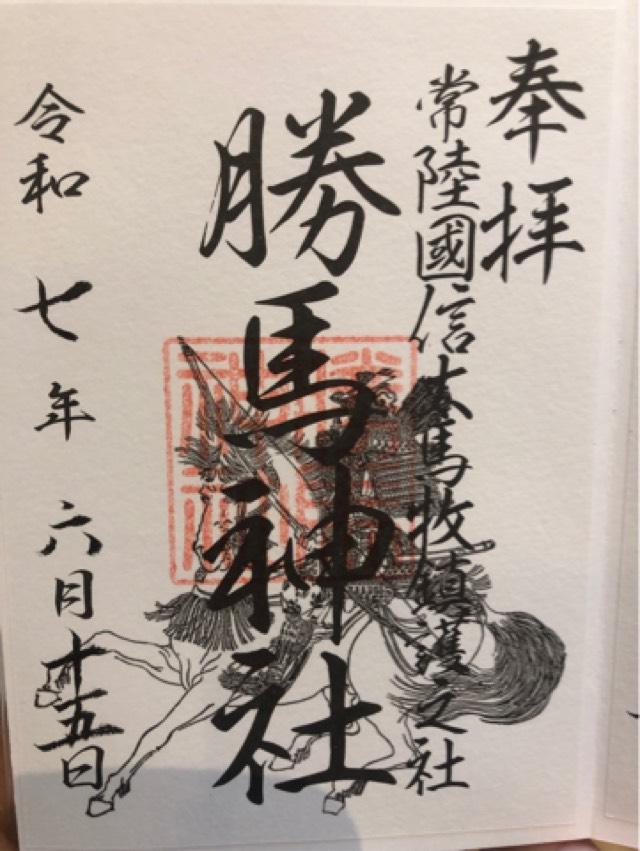 奉拝
常陸國信太馬牧鎮護之社
勝馬神社
令和七年六月十五日